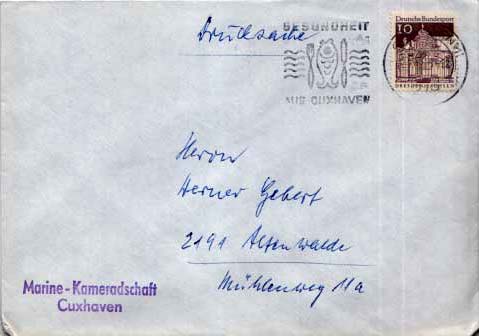 Drucksache
GESUNDHEIT
AUS CUXHAVEN
Deutsche Bundespost
10
DRESDEN/SACHSEN
Herrn
Werner Gebert
2191 Altenwalde
Mühlenweg 11a
Marine-Kameradschaft
Cuxhaven